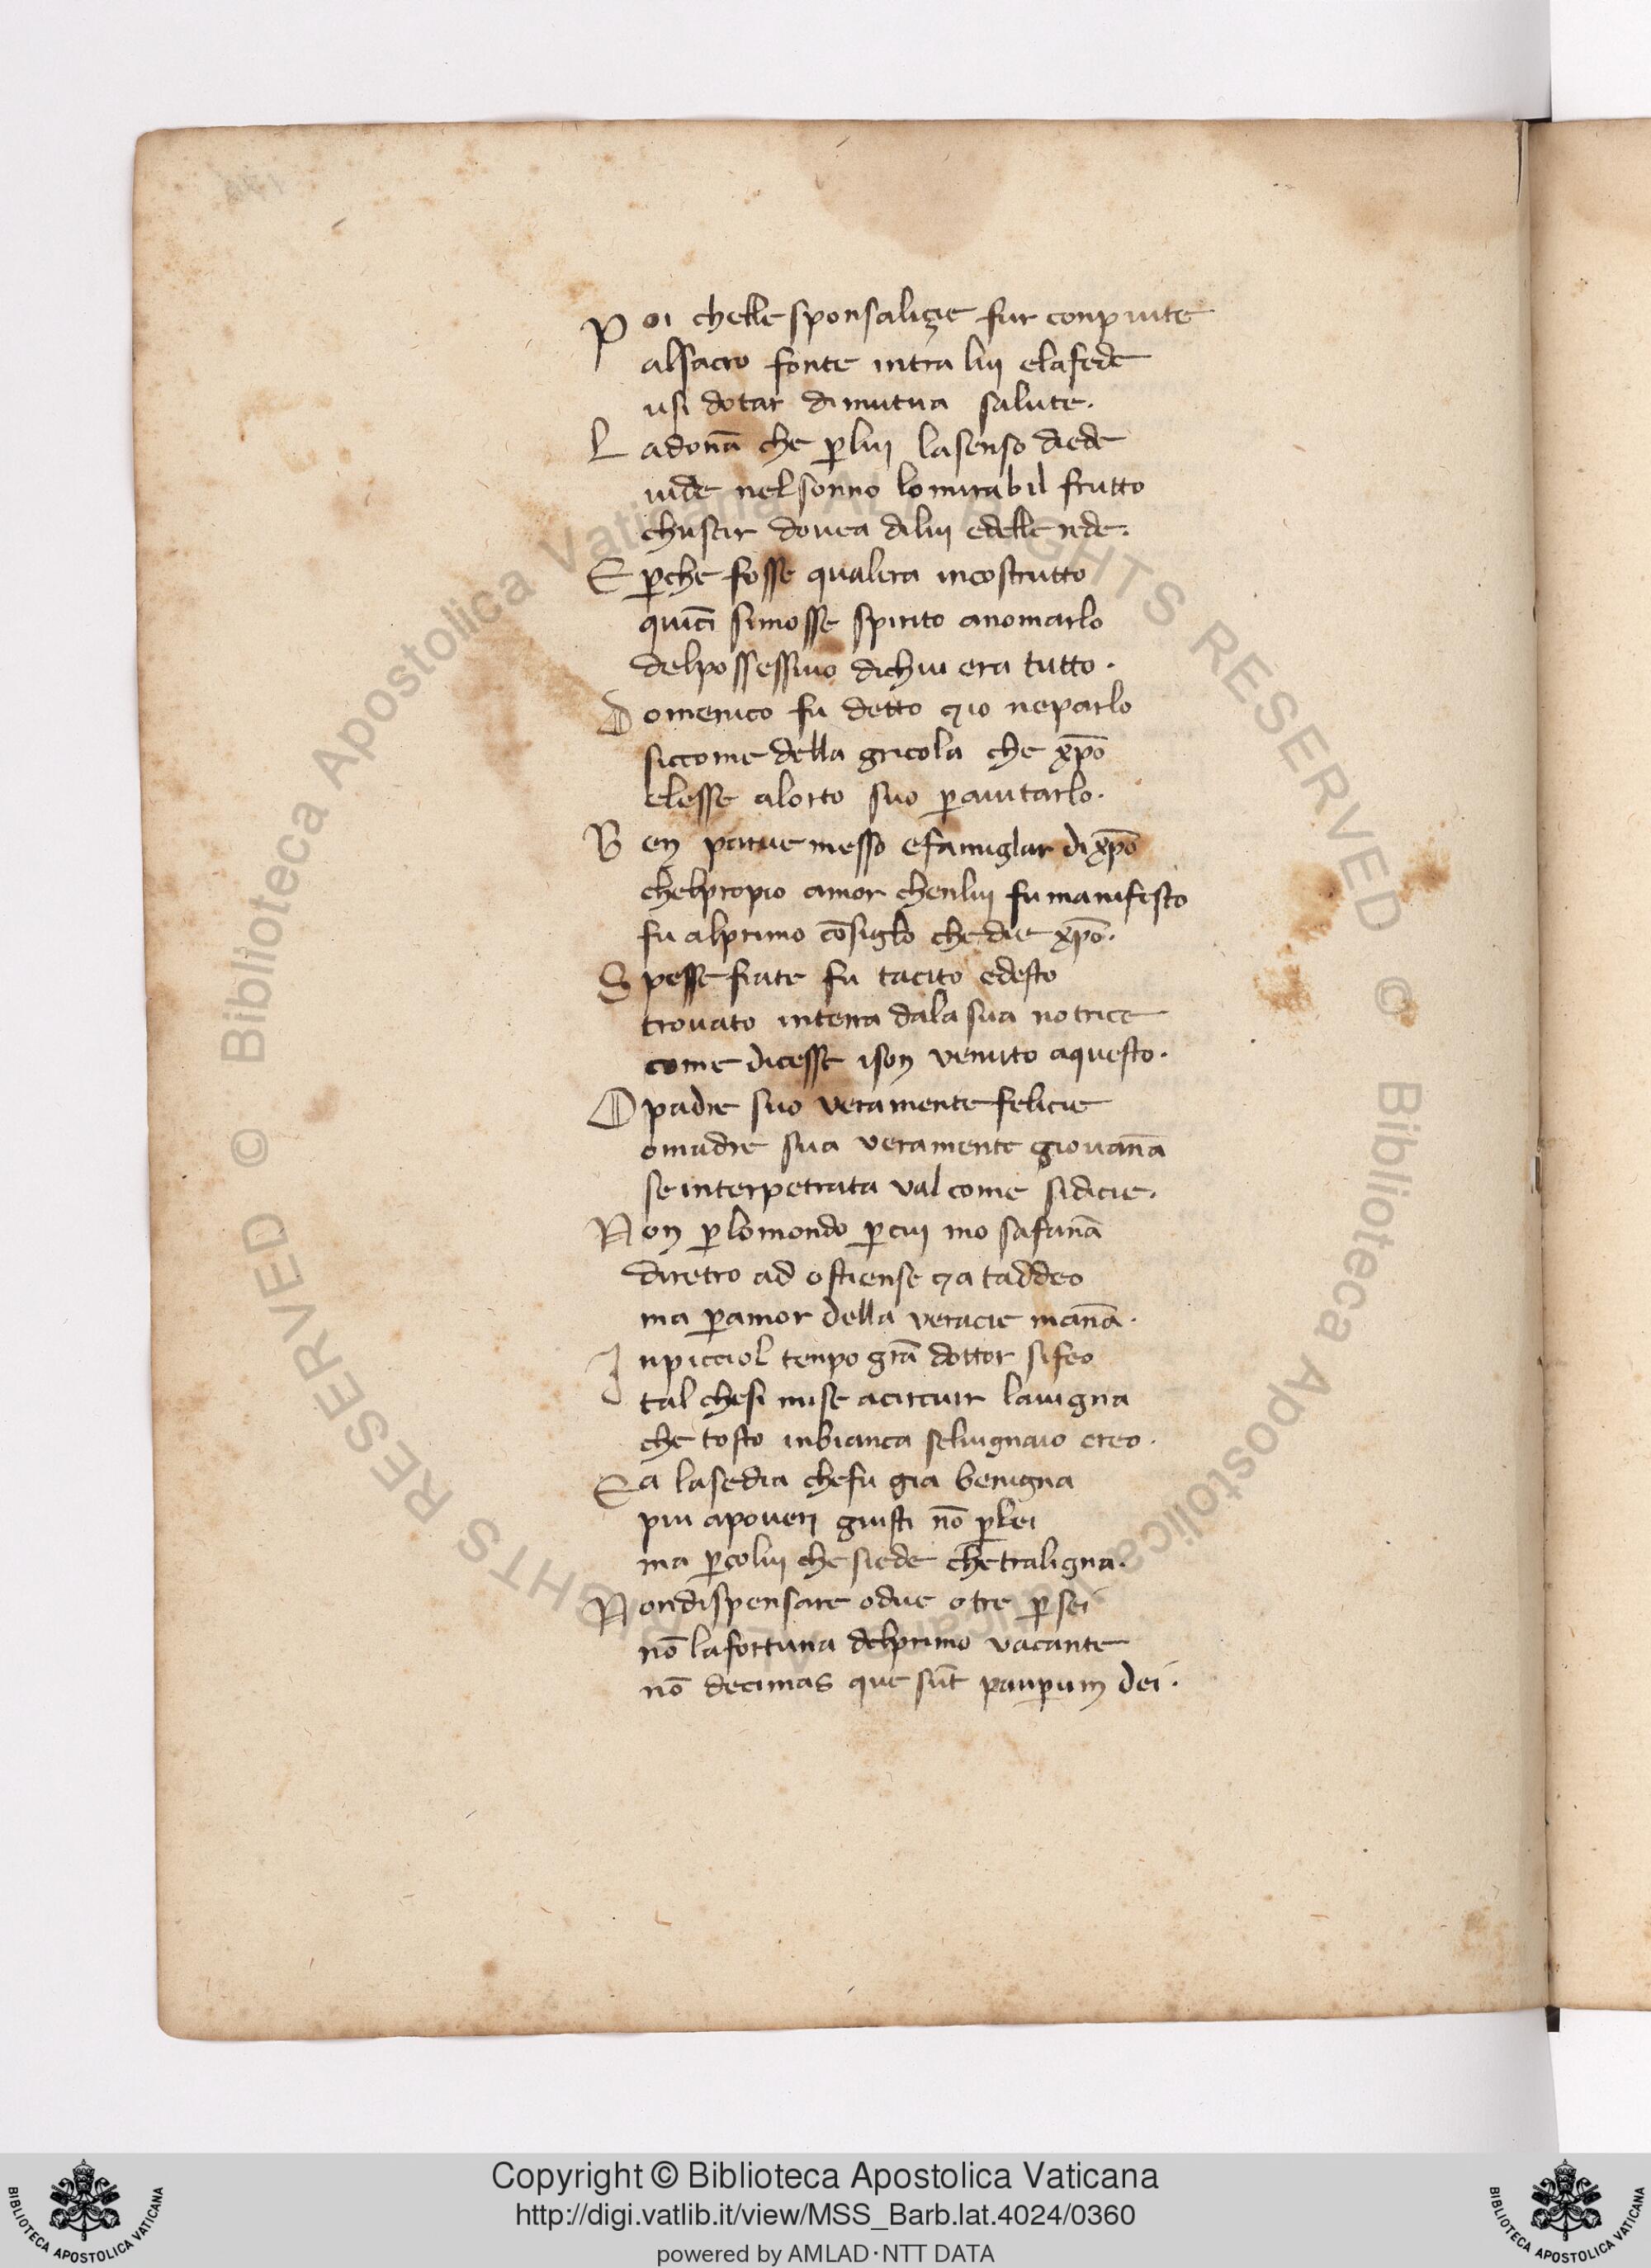 Poi chelle sponsalizie fur conpiute
alsacro fonte intra lui elafede
usi dotar di mutua salute.
Ladonā che ꝑlui lasenso diede
uide nelsonno lo mirabil frutto
chuscir douea dilui edelle rede.
E ꝑche fosse qualera incostrutto
quicī simosse spirito anomarlo
delpossessiuo dichui era tutto.
Domenico fu detto ⁊io neparlo
siccome della gricola che xp̄o
elesse alorto suo ꝑaiutarlo.
Ben parue messo efamiglar dixp̄o
chelpropio amor chenlui fu manifesto
fu alprimo cōsiglo che die xp̄o.
Spesse fiate fu tacito edesto
trouato interra dala sua notrice
come dicesse ison venuto aquesto.
O padre suo veramente felicie
omadre sua veramente giouanā
se interpetrata val come sidicie.
Non ꝑlomondo ꝑcui mo safanā
diretro ad ostiense ⁊a taddeo
ma ꝑamor della veracie manā.
Inpicciol tenpo grā dottor sifeo
tal chesi mise acircuir lauigna
che tosto inbianca seluignaio ereo.
Ea lasedia chefu gia benigna
piu apoueri giusti nō ꝑlei
ma ꝑcolui che siede che traligna.
Nondispensare odue otre ꝑsei
nō lafortuna delprimo vacante
nō decimas que sūt pauꝑum dei.
Copyright © Biblioteca Apostolica Vaticana
http://digi.vatlib.it/view/MSS_Barb.lat.4024/0360
powered by AMLAD·NTT DATA
BIBLIOTECA APOSTOLICA VATICANA
BIBLIOTECA APOSTOLICA VATICANA